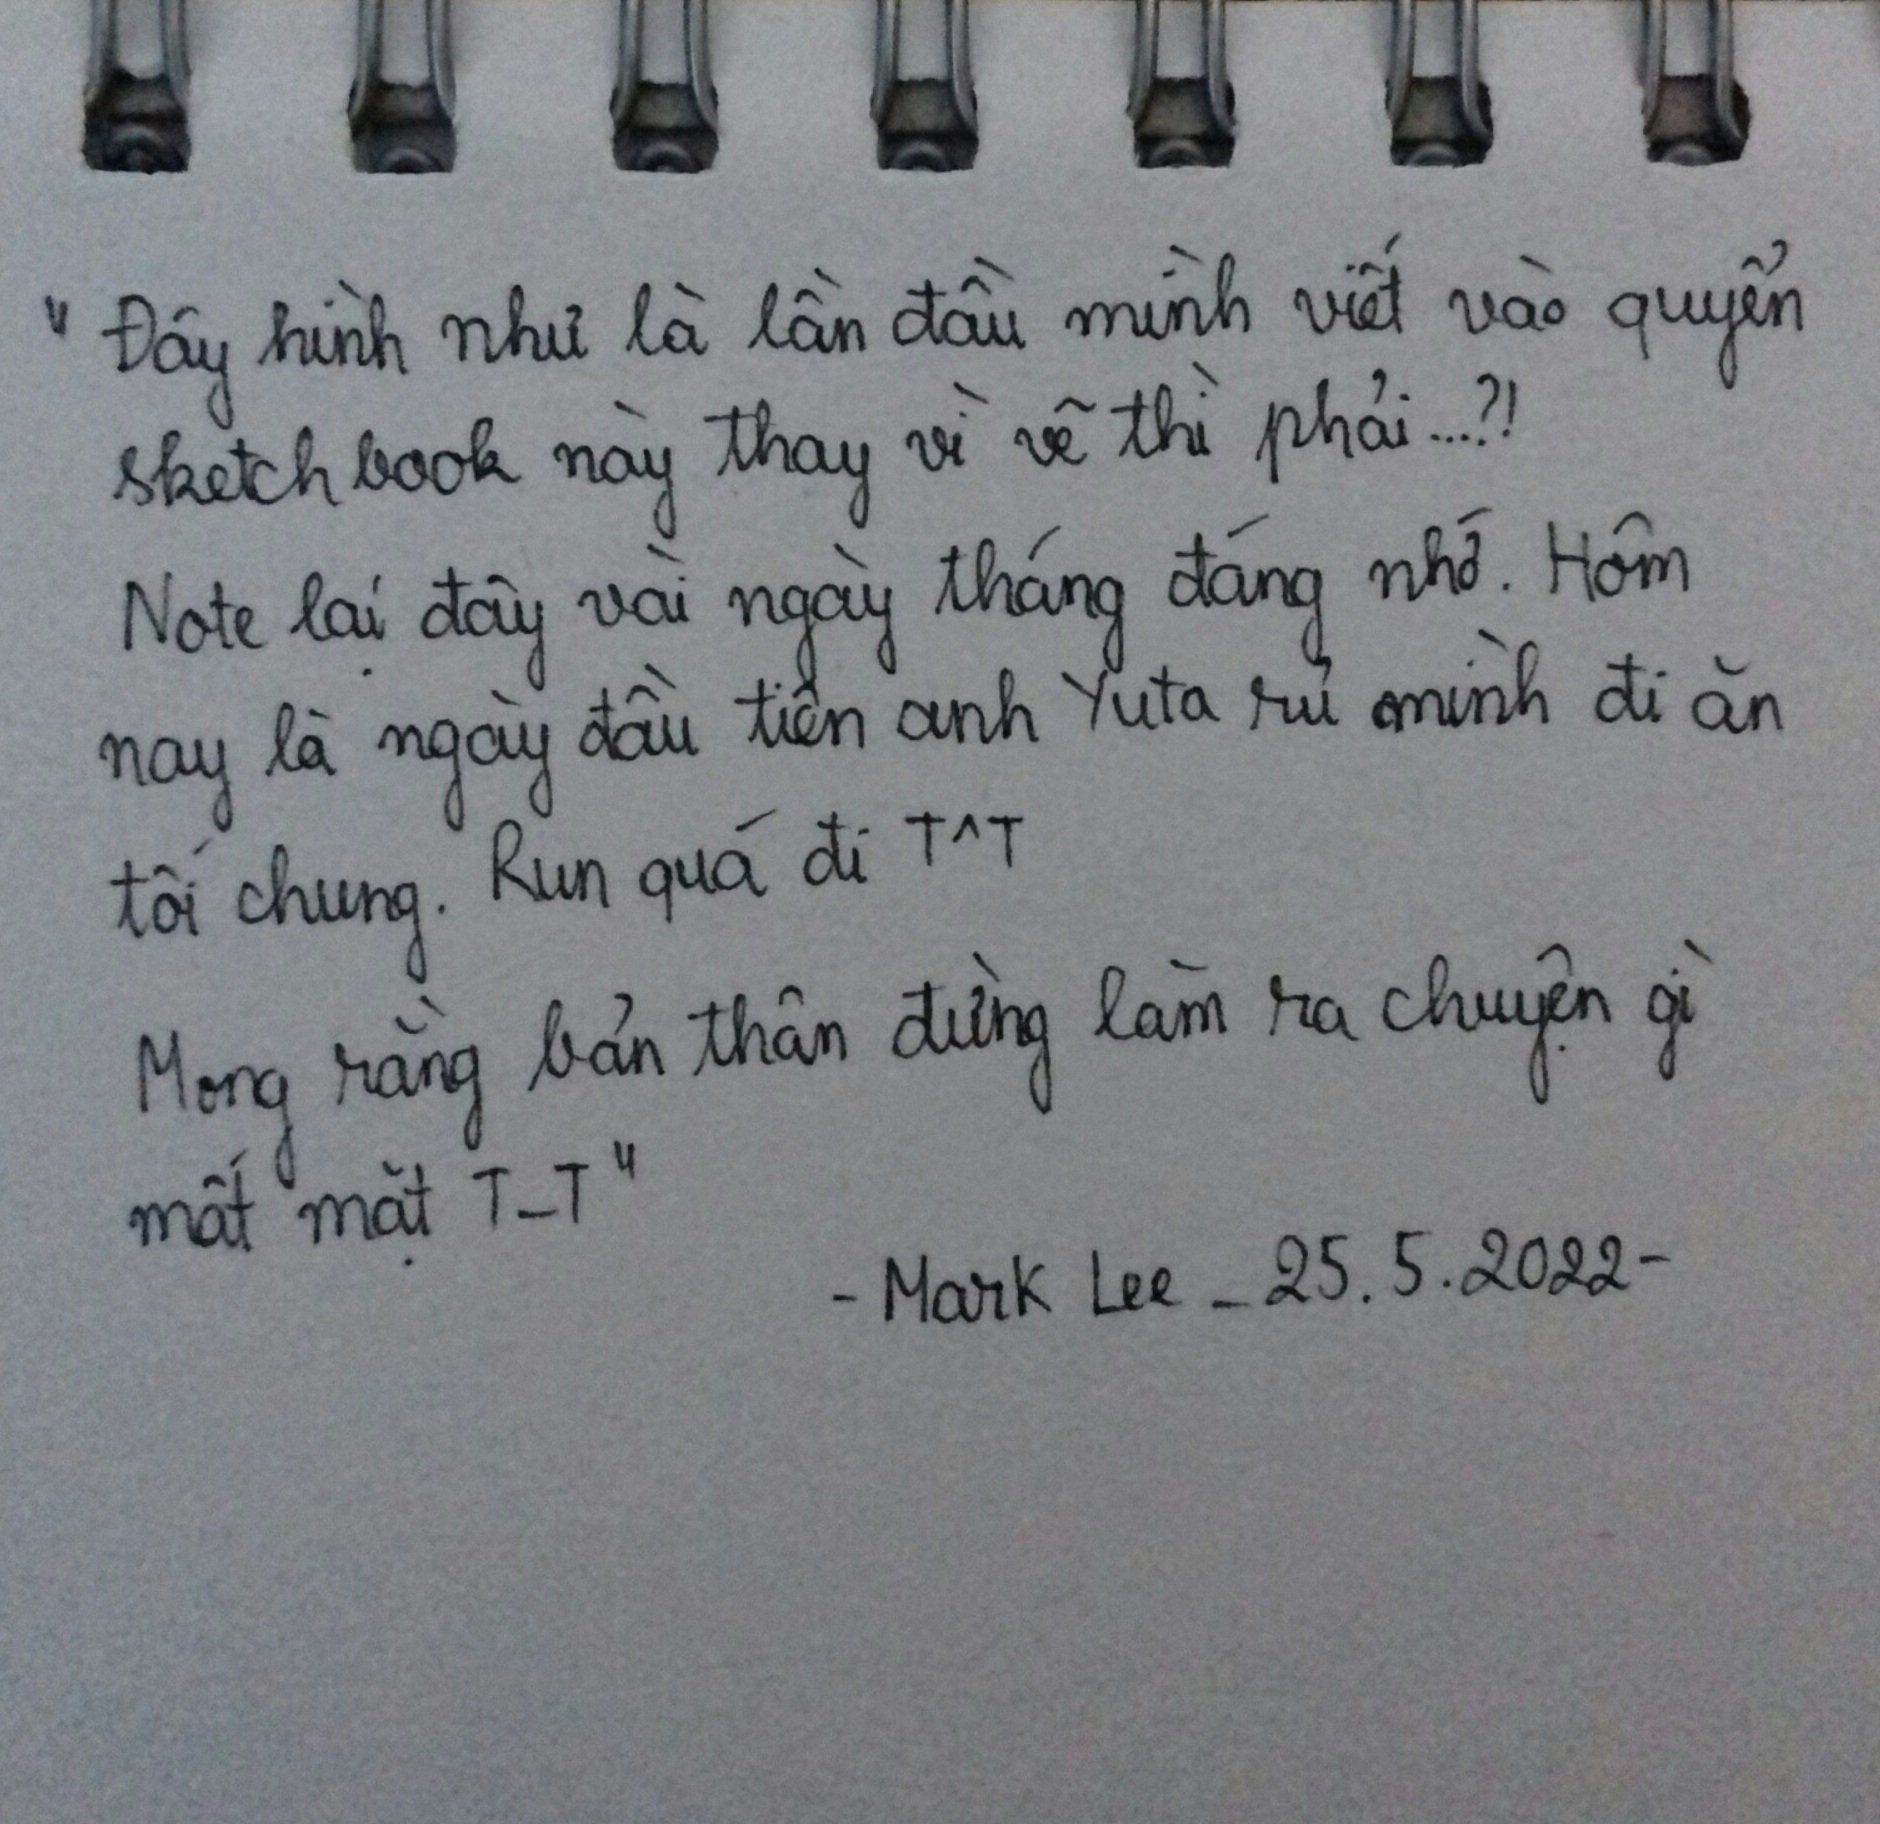 " Đây hình như là lần đầu mình viết vào quyển
sketchbook này thay vì vẽ thì phải...?!
Note lại đây vài ngày tháng đáng nhớ. Hôm
nay là ngày đầu tiên anh Yuta rủ mình đi ăn
tối chung. Run quá đi T^T
Mong rằng bản thân đừng làm ra chuyện gì
mất mặt T_T "
- Mark Lee _ 25.5.2022 -